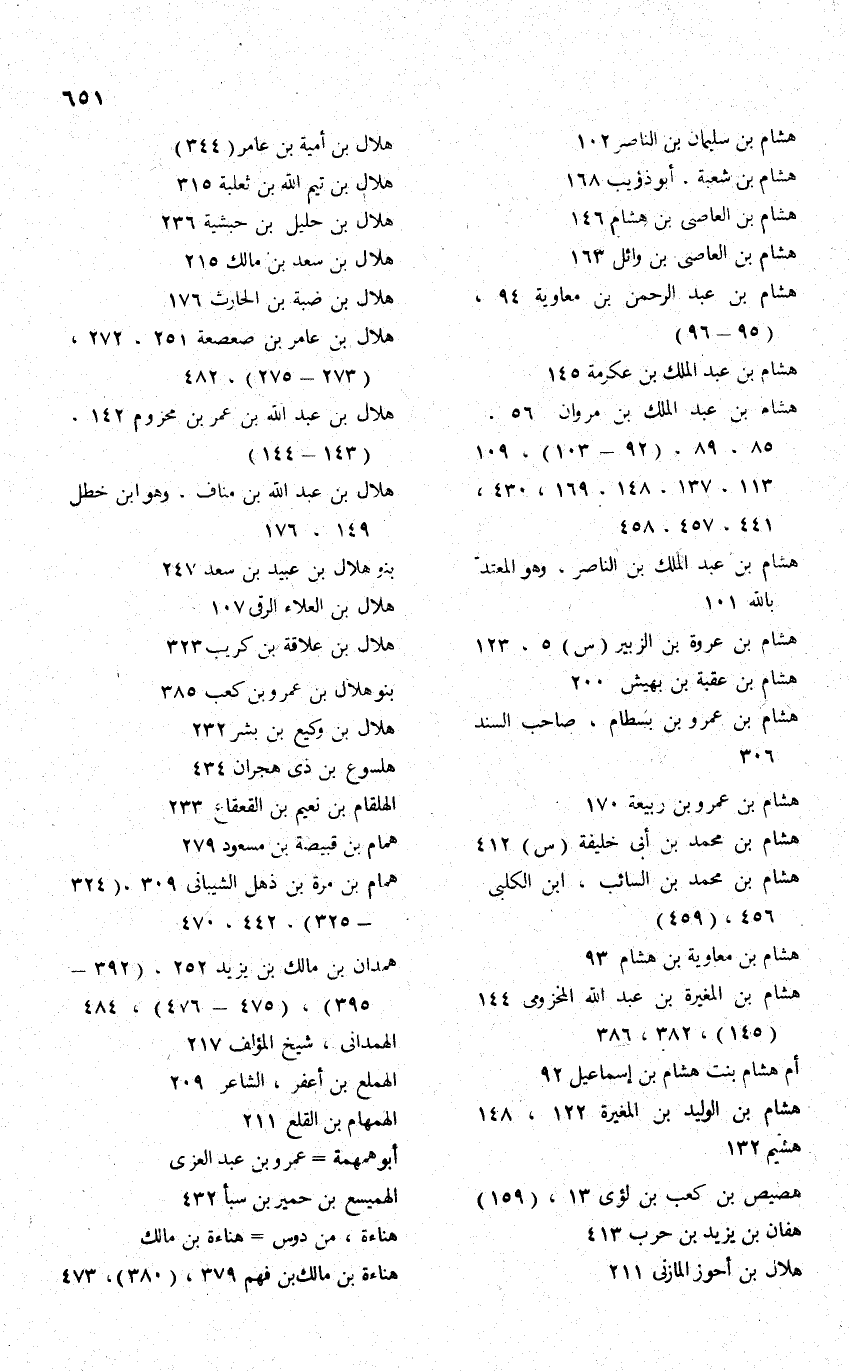 ٦٥١
هشام بن سليمان بن الناصر ١٠٢
هشام بن شعبة . أبو ذؤيب ١٦٨
هشام بن العاصى بن هشام ١٤٦
هشام بن العاصى بن وائل ١٦٣
هشام بن عبد الرحمن بن معاوية ٩٤ ،
(٩٥ – ٩٦)
هشام بن عبد الملك بن عكرمة ١٤٥
هشام بن عبد الملك بن مروان ٥٦ .
٨٥ . ٨٩ . (٩٢ – ١٠٣) ، ١٠٩
١١٣ . ١٣٧ . ١٤٨ . ١٦٩ ، ٤٣٠ ،
٤٤١ . ٤٥٧ . ٤٥٨
هشام بن عبد الملك بن الناصر . وهو المعتدّ
بالله ١٠١
هشام بن عروة بن الزبير (س) ٥ . ١٢٣
هشام بن عقبة بن بهيش ٢٠٠
هشام بن عمرو بن بسطام ، صاحب السند
٣٠٦
هشام بن عمرو بن ربيعة ١٧٠
هشام بن محمد بن أبى خليفة (س) ٤١٢
هشام بن محمد بن السائب ، ابن الكلبى
٤٥٦ ، (٤٥٩)
هشام بن معاوية بن هشام ٩٣
هشام بن المغيرة بن عبد الله المخزومى ١٤٤
(١٤٥) ، ٣٨٢ ، ٣٨٦
أم هشام بنت هشام بن إسماعيل ٩٢
هشام بن الوليد بن المغيرة ١٢٢ ، ١٤٨
هشيم ١٣٢
هصيص بن كعب بن لؤى ١٣ ، (١٥٩)
هفان بن يزيد بن حرب ٤١٣
هلال بن أحوز المازنى ٢١١
هلال بن أمية بن عامر (٣٤٤)
هلال بن تيم الله بن ثعلبة ٣١٥
هلال بن حليل بن حبشية ٢٣٦
هلال بن سعد بن مالك ٢١٥
هلال بن ضبة بن الحارث ١٧٦
هلال بن عامر بن صعصعة ٢٥١ . ٢٧٢ ،
(٢٧٣ – ٢٧٥) . ٤٨٢
هلال بن عبد الله بن عمر بن مخزوم ١٤٢ .
(١٤٣ – ١٤٤)
هلال بن عبد الله بن مناف . وهو ابن خطل
١٤٩ . ١٧٦
بنو هلال بن عبيد بن سعد ٢٤٧
هلال بن العلاء الرقى ١٠٧
هلال بن علاقة بن كريب ٣٢٣
بنو هلال بن عمرو بن كعب ٣٨٥
هلال بن وكيع بن بشر ٢٣٢
هلسوع بن ذى هجران ٤٣٤
الهلقام بن نعيم بن القعقاع ٢٣٣
همام بن قبيصة بن مسعود ٢٧٩
همام بن مرة بن ذهل الشيبانى ٣٠٩ . (٣٢٤
– ٣٢٥) . ٤٤٢ . ٤٧٠
همدان بن مالك بن يزيد ٢٥٢ . (٣٩٢ –
٣٩٥) ، (٤٧٥ – ٤٧٦) ، ٤٨٤
الهمدانى ، شيخ المؤلف ٢١٧
الهملع بن أعفر ، الشاعر ٢٠٩
الهمهام بن القلع ٢١١
أبو همهمة = عمرو بن عبد العزى
الهميسع بن حمير بن سبأ ٤٣٢
هناءة ، من دوس = هناءة بن مالك
هناءة بن مالك بن فهم ٣٧٩ ، (٣٨٠) ، ٤٧٣